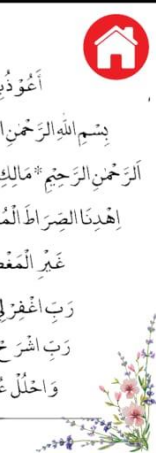 أَعُوْذُ
بِسْمِ اللهِ الرَّحْمٰنِ
اَلرَّحْمٰنِ الرَّحِيْمِ * مَالِكِ
اِهْدِنَا الصِّرَاطَ
غَيْرِ
رَبِّ اغْفِرْ
رَبِّ اشْرَحْ
وَاحْلُلْ